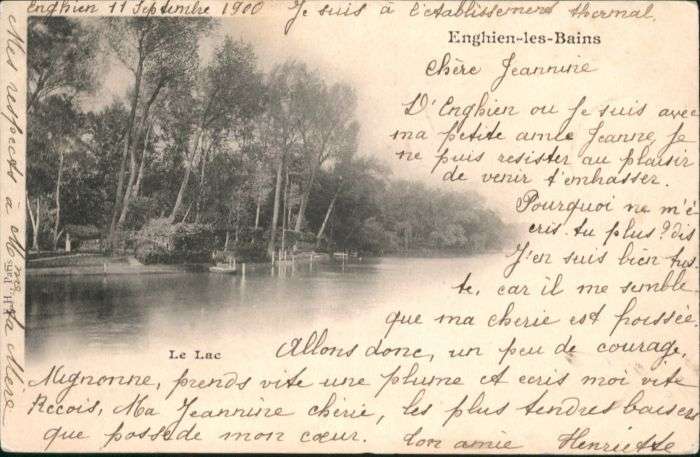 Enghien 11 Septembre 1900 Je suis à l'etablissement thermal,
Enghien-les-Bains
Chère Jeannine
D'Enghien ou je suis avec
ma petite amie Jeanne, je
ne puis resister au plaisir
de venir t'embrasser.
Pourquoi ne m'é
cris. tu plus? dis
J'en suis bien tris
te, car il me semble
que ma cherie est froissée
Le Lac
Allons donc, un peu de courage,
Mignonne, prends vite une plume et ecris moi vite
Recois, Ma Jeannine chérie, les plus tendres baisers
que possede mon cœur. Ton amie Henriette
Mes respects à Mme ta Mère